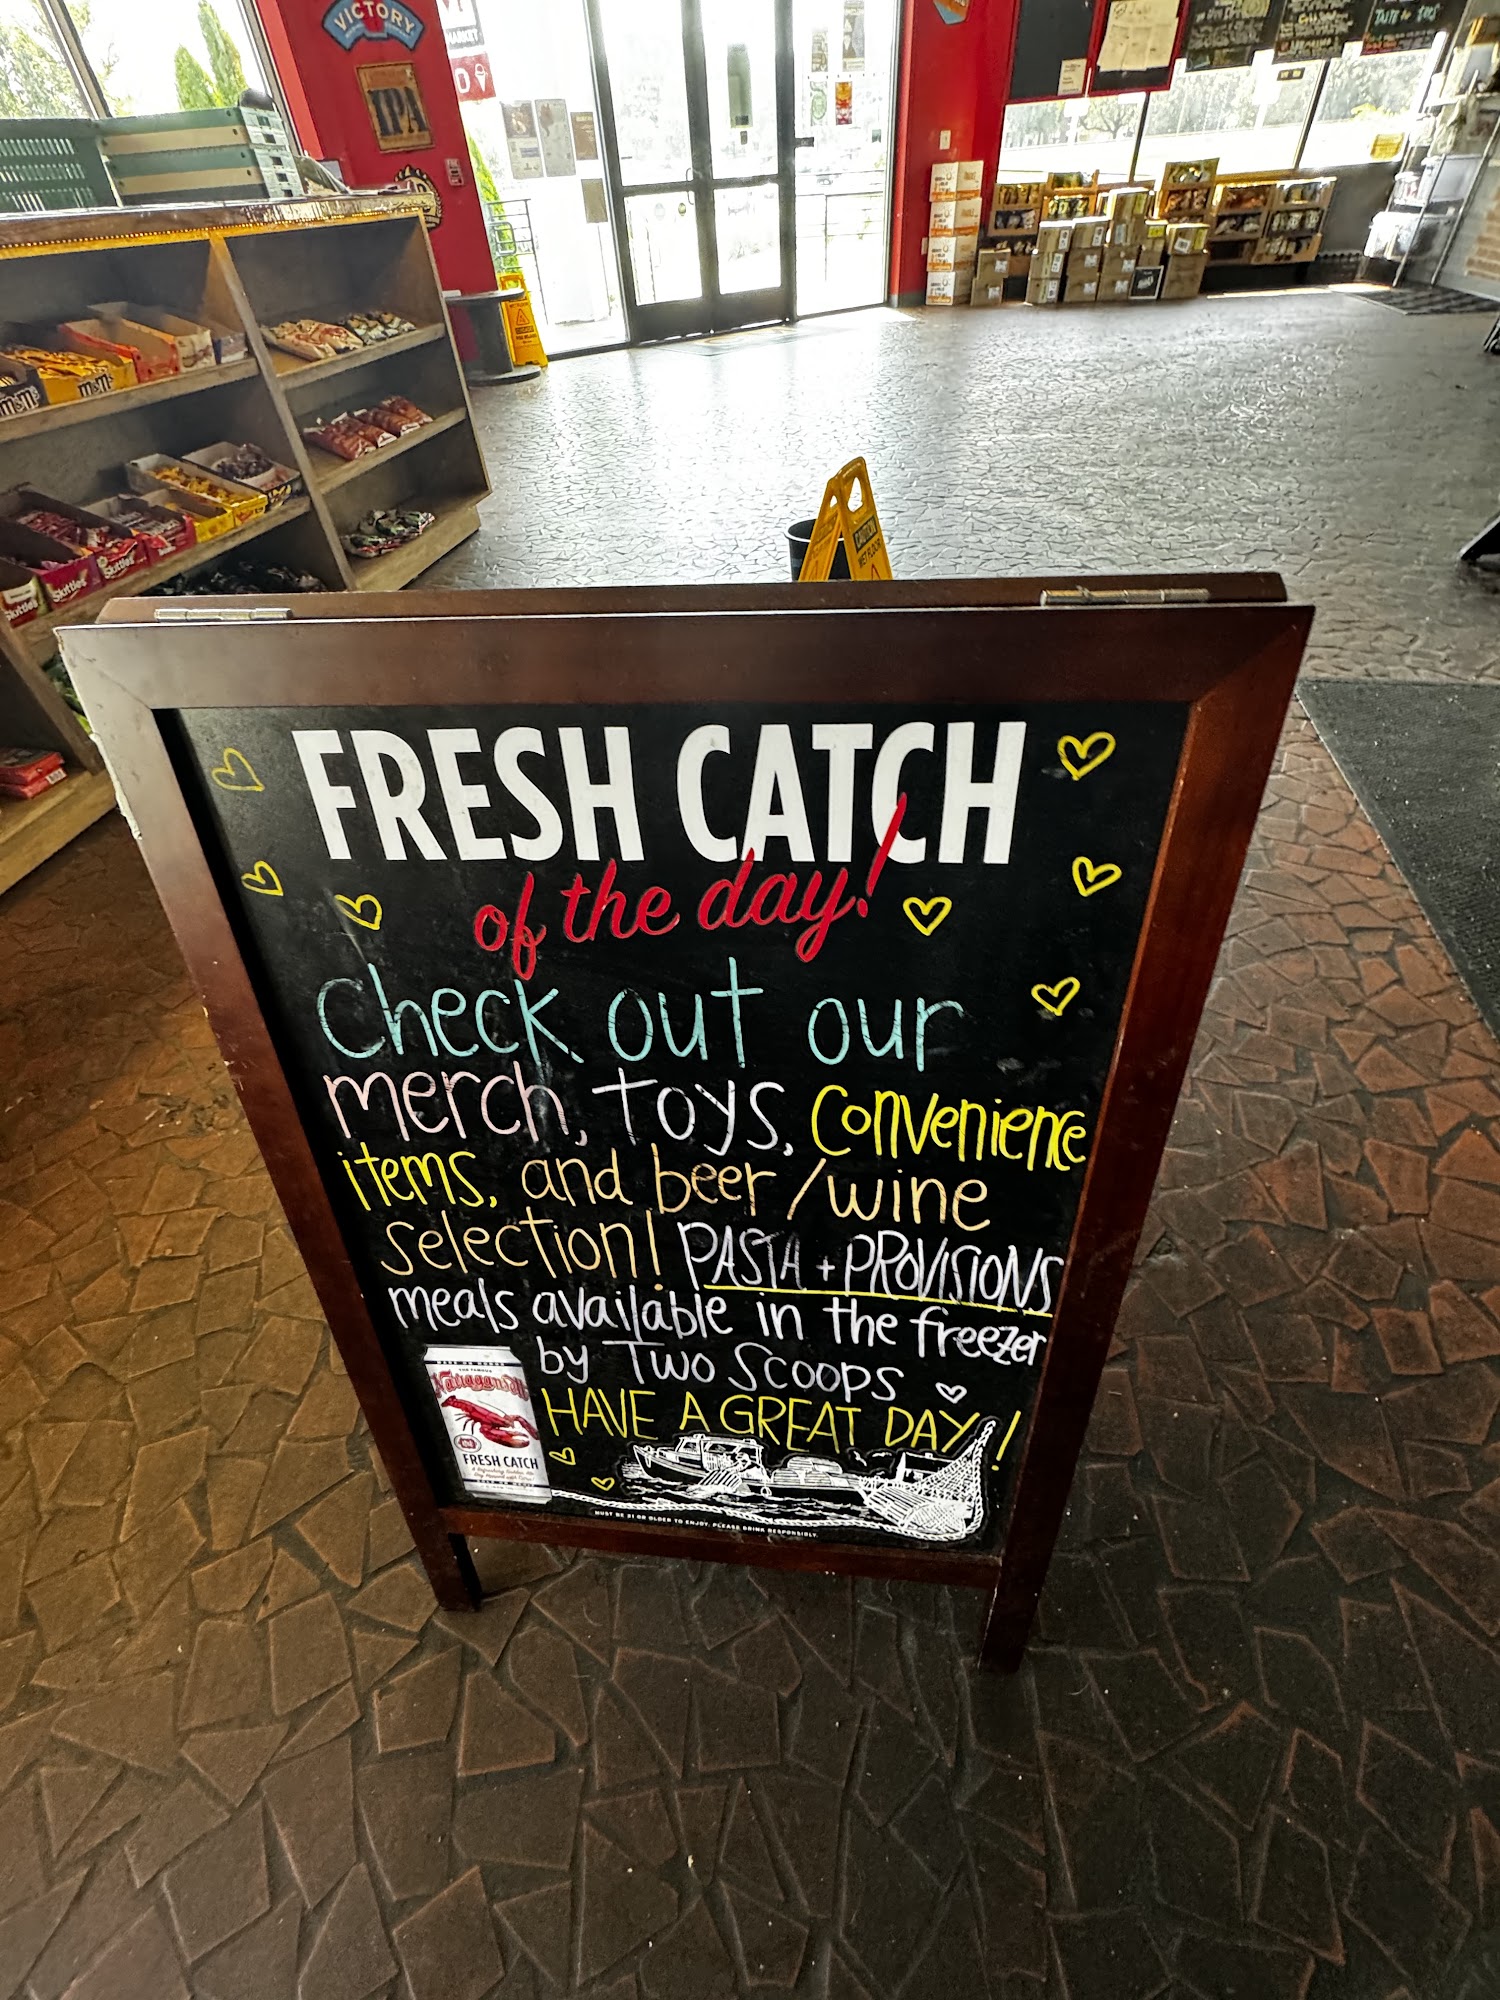 VICTORY
IPA
MARKET
TASTE the TOPS
m&m's
m&m's
Skittles
Skittles
CAUTION
WET FLOOR
FRESH CATCH
of the day!
Check out our
merch, toys, convenience
items, and beer/wine
selection! PASTA + PROVISIONS
meals available in the freezer
by Two Scoops
HAVE A GREAT DAY!
Narragansett
FRESH CATCH
MUST BE 21 OR OLDER TO ENJOY. PLEASE DRINK RESPONSIBLY.